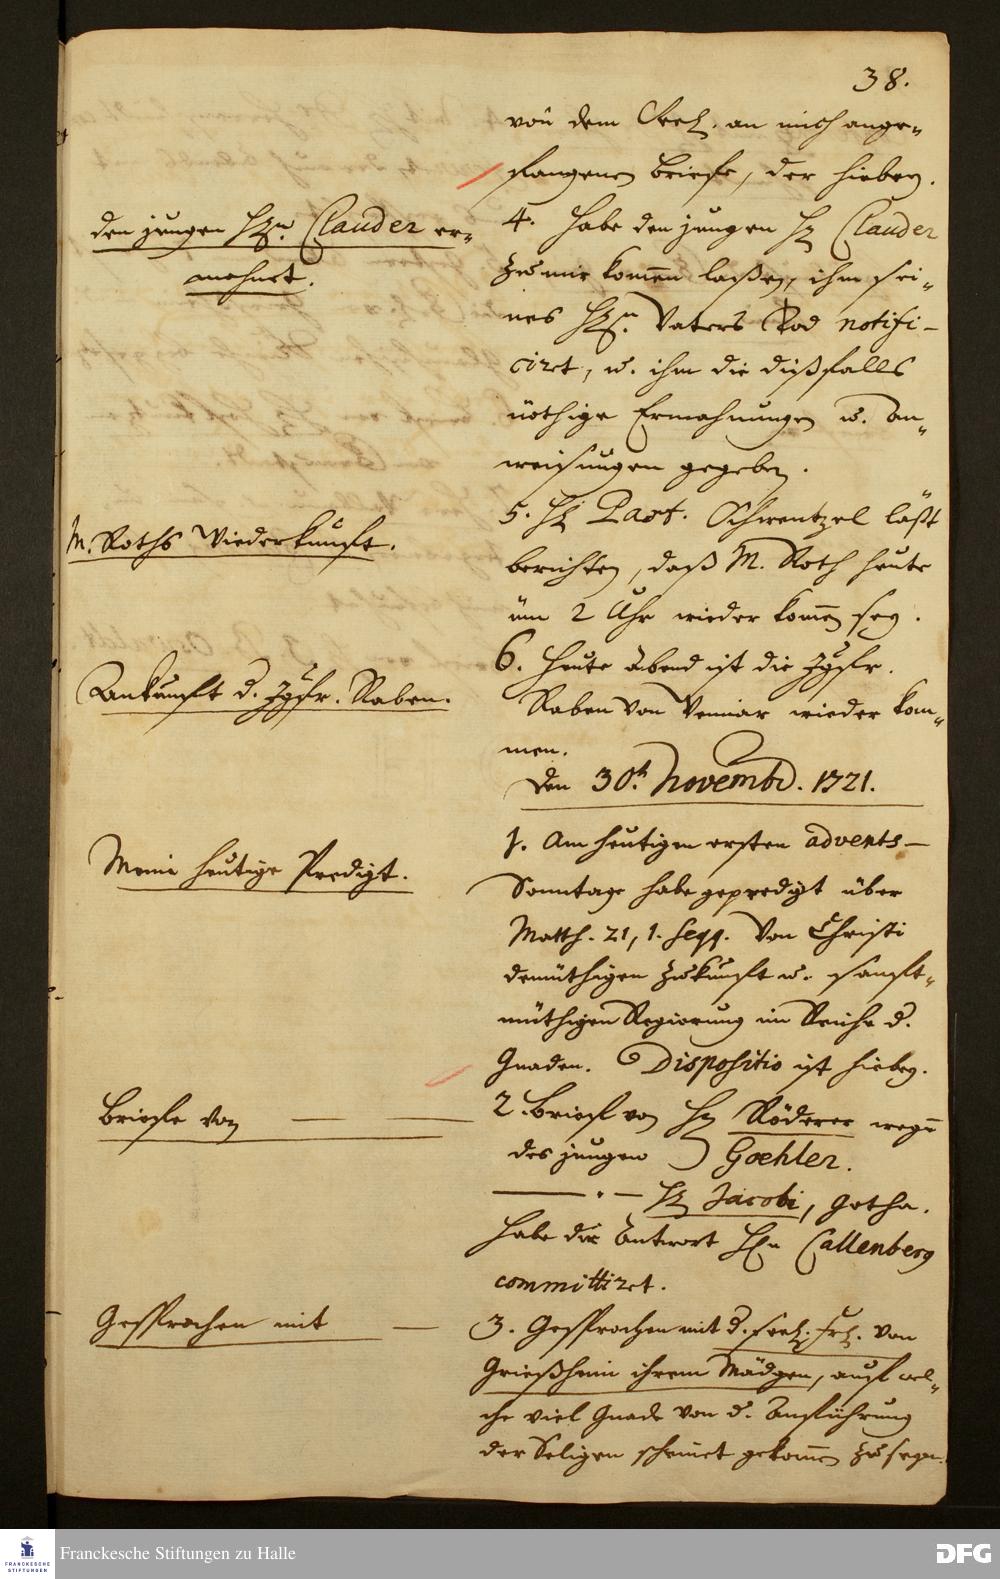 38.
von dem Seel. an mich ange-
fangenen Briefe, der hiebey.
den jungen Hrn. Clauder er-
mahnet.
4. Habe den jungen H. Clauder
zu mir kommen laßen, ihm sei-
nes Hrn. Vaters Tod notifi-
ciret, u. ihm die dißfalls
nöthige Ermahnungen u. An-
weisungen gegeben.
M. Roths Wiederkunfft.
5. H. Past. Schwentzel läßt
berichten, daß M. Roth heute
üm 2 Uhr wieder kommen sey.
Ankunfft d. Jgfr. Raben.
6. Heute Abend ist die Jgfr.
Raben von Venniar wieder kom-
men.
Den 30t. Novembr. 1721.
Meine heutige Predigt.
1. Am heutigen ersten advents-
Sonntage habe gepredigt über
Matth. 21, 1. seqq. Von Christi
demüthigen Zukunfft u. sanfft-
müthigen Regierung im Reiche d.
Gnaden. Dispositio ist hiebey.
Briefe von
2. Brieff von H. Röderer wegen
des jungen Goehler.
H. Jacobi, Gotha.
Habe die Antwort Hrn Callenberg
committiret.
Gesprochen mit
3. Gesprochen mit d. seel. Frl. von
Grießheim ihrem Mädgen, auff wel-
che viel Gnade von d. Anführung
der Seligen scheinet gekommen zu seyn.
Franckesche Stiftungen zu Halle
FRANCKESCHE
STIFTUNGEN
DFG